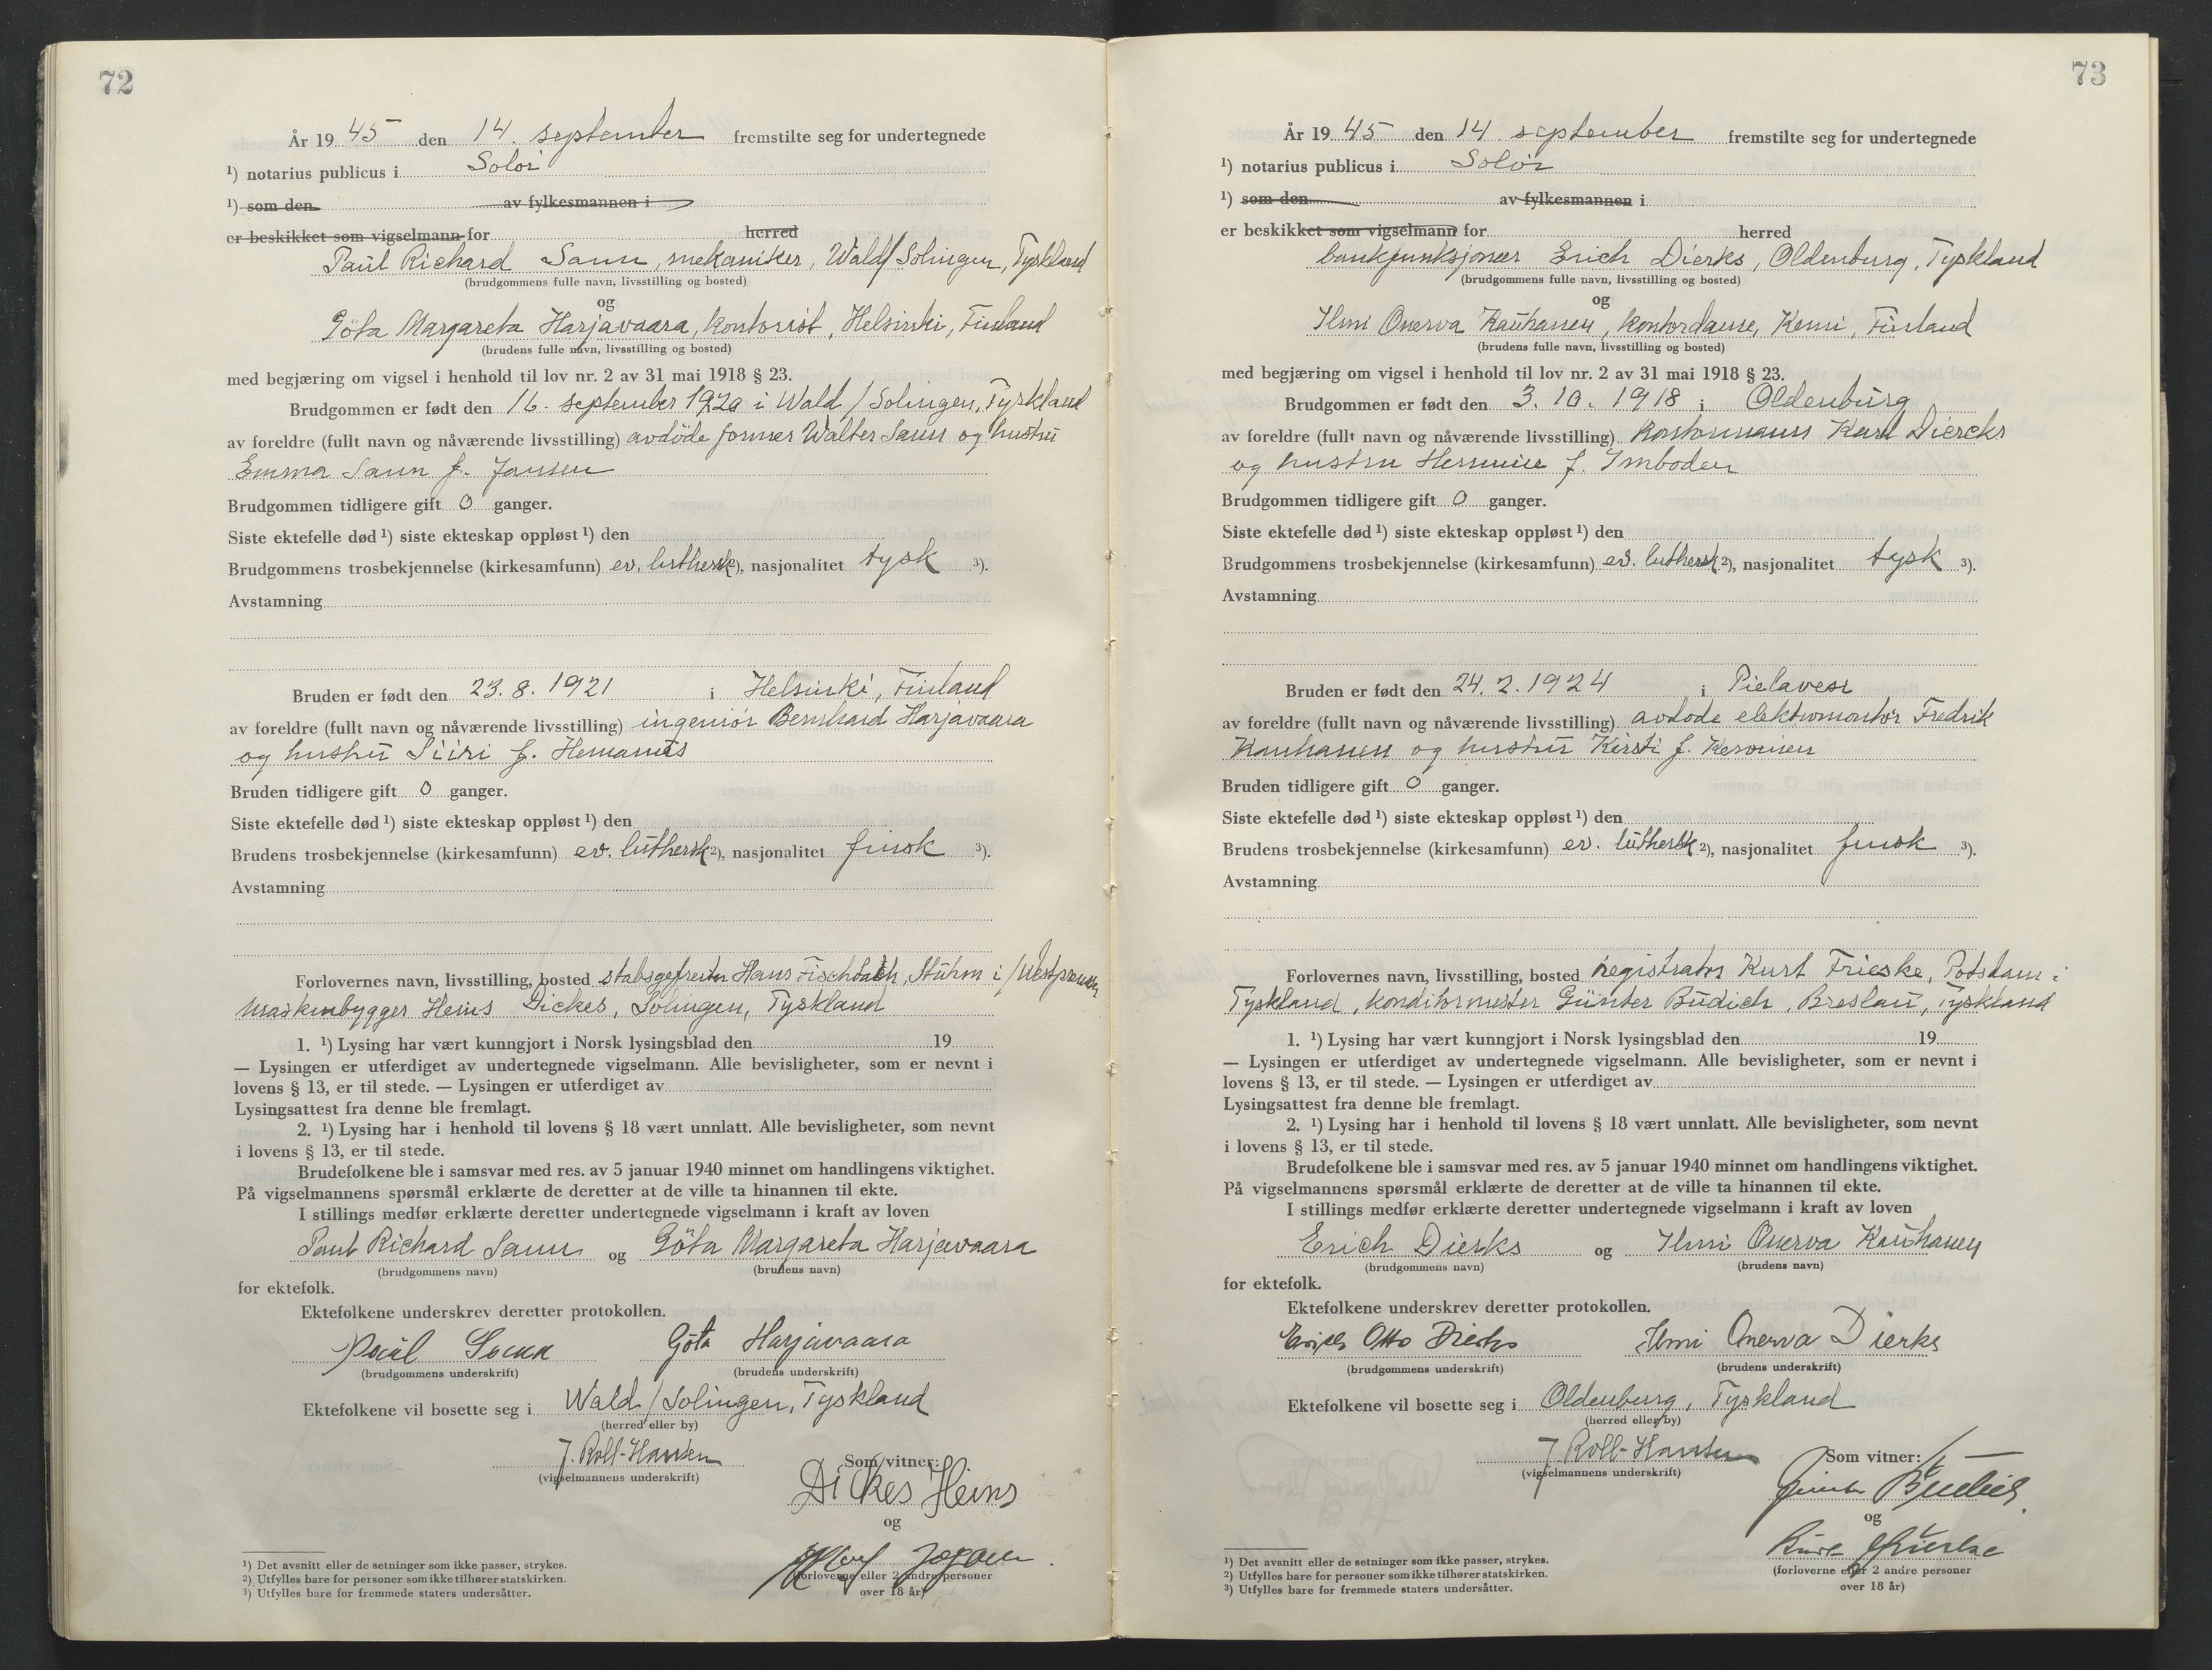 72
År 19 45 den 14. september fremstilte seg for undertegnede
¹) notarius publicus i Solør
¹) som den av fylkesmannen i
er beskikket som vigselmann for herred
Paul Richard Sann, mekaniker, Wald/Solingen, Tyskland
(brudgommens fulle navn, livsstilling og bosted)
og
Göta Margareta Harjavaara, kontorist, Helsinki, Finland
(brudens fulle navn, livsstilling og bosted)
med begjæring om vigsel i henhold til lov nr. 2 av 31 mai 1918 § 23.
Brudgommen er født den 16. september 1920 i Wald / Solingen, Tyskland
av foreldre (fullt navn og nåværende livsstilling) avdöde former Walter Sann og hustru
Emma Sann f. Jansen
Brudgommen tidligere gift 0 ganger.
Siste ektefelle død ¹) siste ekteskap oppløst ¹) den
Brudgommens trosbekjennelse (kirkesamfunn) ev. luthersk ²), nasjonalitet tysk ³).
Avstamning
Bruden er født den 23. 8. 1921 i Helsinki, Finland
av foreldre (fullt navn og nåværende livsstilling) ingeniör Bernhard Harjavaara
og hustru Siiri f.
Bruden tidligere gift 0 ganger.
Siste ektefelle død ¹) siste ekteskap oppløst ¹) den
Brudens trosbekjennelse (kirkesamfunn) ev. luthersk ²), nasjonalitet finsk ³).
Avstamning
Forlovernes navn, livsstilling, bosted stabsgefreiter Hans Stuhm i /
Maskinbygger Heins Dickes, Solingen, Tyskland
1. ¹) Lysing har vært kunngjort i Norsk lysingsblad den 19
— Lysingen er utferdiget av undertegnede vigselmann. Alle bevisligheter, som er nevnt i
lovens § 13, er til stede. — Lysingen er utferdiget av
Lysingsattest fra denne ble fremlagt.
2. ¹) Lysing har i henhold til lovens § 18 vært unnlatt. Alle bevisligheter, som nevnt
i lovens § 13, er til stede.
Brudefolkene ble i samsvar med res. av 5 januar 1940 minnet om handlingens viktighet.
På vigselmannens spørsmål erklærte de deretter at de ville ta hinannen til ekte.
I stillings medfør erklærte deretter undertegnede vigselmann i kraft av loven
Paul Richard Sann og Göta Margareta Harjavaara
(brudgommens navn) (brudens navn)
for ektefolk.
Ektefolkene underskrev deretter protokollen.
Paul Sann Göta Harjavaara
(brudgommens underskrift) (brudens underskrift)
Ektefolkene vil bosette seg i Wald / Solingen, Tyskland
(herred eller by)
J. Roll-Hansen
(vigselmannens underskrift)
Som vitner:
Dickes Heins
og
(forloverne eller 2 andre personer
over 18 år)
¹) Det avsnitt eller de setninger som ikke passer, strykes.
²) Utfylles bare for personer som ikke tilhører statskirken.
³) Utfylles bare for fremmede staters undersåtter.
73
År 19 45 den 14 september fremstilte seg for undertegnede
¹) notarius publicus i Solør
¹) som den av fylkesmannen i
er beskikket som vigselmann for herred
bankfunksjonær Erich Dierks, Oldenburg, Tyskland
(brudgommens fulle navn, livsstilling og bosted)
og
Ilmi Onerva Kauhanen, kontordame, Kemi, Finland
(brudens fulle navn, livsstilling og bosted)
med begjæring om vigsel i henhold til lov nr. 2 av 31 mai 1918 § 23.
Brudgommen er født den 3. 10. 1918 i Oldenburg
av foreldre (fullt navn og nåværende livsstilling) Kontormann Karl Diercks
og hustru Hermine f. Imboden
Brudgommen tidligere gift 0 ganger.
Siste ektefelle død ¹) siste ekteskap oppløst ¹) den
Brudgommens trosbekjennelse (kirkesamfunn) ev. luthersk ²), nasjonalitet tysk ³).
Avstamning
Bruden er født den 24. 2. 1924 i Pielavesi
av foreldre (fullt navn og nåværende livsstilling) avdöde elektromontör Fredrik
Kauhanen og hustru Kirsti f.
Bruden tidligere gift 0 ganger.
Siste ektefelle død ¹) siste ekteskap oppløst ¹) den
Brudens trosbekjennelse (kirkesamfunn) ev. luthersk ²), nasjonalitet finsk ³).
Avstamning
Forlovernes navn, livsstilling, bosted registrator Kurt Frieske, Potsdam i
Tyskland, konditormester Günter Büdich, Breslau, Tyskland
1. ¹) Lysing har vært kunngjort i Norsk lysingsblad den 19
— Lysingen er utferdiget av undertegnede vigselmann. Alle bevisligheter, som er nevnt i
lovens § 13, er til stede. — Lysingen er utferdiget av
Lysingsattest fra denne ble fremlagt.
2. ¹) Lysing har i henhold til lovens § 18 vært unnlatt. Alle bevisligheter, som nevnt
i lovens § 13, er til stede.
Brudefolkene ble i samsvar med res. av 5 januar 1940 minnet om handlingens viktighet.
På vigselmannens spørsmål erklærte de deretter at de ville ta hinannen til ekte.
I stillings medfør erklærte deretter undertegnede vigselmann i kraft av loven
Erich Dierks og Ilmi Onerva Kauhanen
(brudgommens navn) (brudens navn)
for ektefolk.
Ektefolkene underskrev deretter protokollen.
Erich Otto Dierks Ilmi Onerva Dierks
(brudgommens underskrift) (brudens underskrift)
Ektefolkene vil bosette seg i Oldenburg, Tyskland
(herred eller by)
J. Roll-Hansen
(vigselmannens underskrift)
Som vitner:
Günter Büdich
og
Kurt Frieske
(forloverne eller 2 andre personer
over 18 år)
¹) Det avsnitt eller de setninger som ikke passer, strykes.
²) Utfylles bare for personer som ikke tilhører statskirken.
³) Utfylles bare for fremmede staters undersåtter.